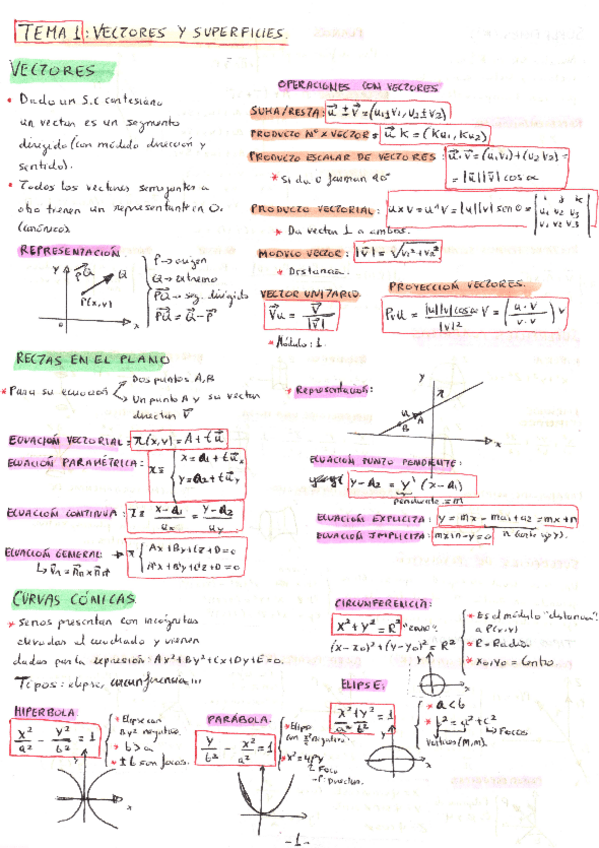 TEMA 1: VECTORES Y SUPERFICIES.
VECTORES
• Dado un S.C cartesiano
un vector es un segmento
dirigido (con módulo dirección y
sentido).
• Todos los vectores semejantes a
otro tienen un representante en O.
(canónico).
REPRESENTACIÓN.
Y
PQ
Q
P(x,y)
0
x
P → origen
Q → extremo
PQ → seg. dirigido
PQ = Q - P
OPERACIONES CON VECTORES
SUMA/RESTA: u ± v = (u1±v1, u2±v2)
PRODUCTO Nº X VECTOR = u·k = (ku1, ku2)
PRODUCTO ESCALAR DE VECTORES: u·v = (u1v1)+(u2v2) =
= |u||v| cos α
* Si da 0 forman 90º
PRODUCTO VECTORIAL: u×v = u∧v = |u||v| sen θ =
i j k
u1 u2 u3
v1 v2 v3
* Da vector ⊥ a ambos.
MODULO VECTOR: |v| = √v1²+v2²
* Distancia.
VECTOR UNITARIO.
Vu = v / |v|
* Módulo: 1.
PROYECCIÓN VECTORES.
Pvu = |u||v|cos α / |v|² V = (u·v / v·v) v
RECTAS EN EL PLANO
* Para su ecuación
Dos puntos A, B
Un punto A y su vector
director v
* Representación:
Y
π
u
A
B
x
ECUACIÓN VECTORIAL = π(x,y) = A + t u
ECUACIÓN PARAMÉTRICA:
x = a1 + t ux
y = a2 + t uy
ECUACIÓN CONTINUA: x - a1 / ux = y - a2 / uy
ECUACIÓN GENERAL: → π
Ax+By+Cz+D=0
A'x+B'y+C'z+D=0
ECUACIÓN PUNTO PENDIENTE:
y - a2 = y' (x - a1)
pendiente = m
ECUACIÓN EXPLICITA: y = mx - ma1 + a2 = mx + n
ECUACIÓN IMPLICITA: mx + n - y = 0
CURVAS CÓNICAS.
* Se nos presentan con incógnitas
elevadas al cuadrado y vienen
dadas por la expresión: Ax²+By²+Cx+Dy+E=0.
Tipos: elipse, circunferencia...
CIRCUNFERENCIA:
x²+y² = R²
(x-x0)²+(y-y0)² = R²
* Es el módulo "distancia"
a P(x,y)
* R = Radio.
* x0, y0 = Centro.
HIPERBOLA.
x²/a² - y²/b² = 1
* Elipse con
By² negativo.
* b > a
* ± b son focos.
PARÁBOLA.
y/b² - x²/a² = 1
* Elipse
con x² negativo.
Foco
ELIPSE.
x²/a² + y²/b² = 1
* a < b
* b² = a² + c²
Focos
-1-